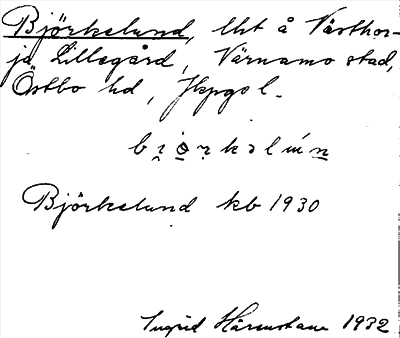 Björkelund, lht å Västhor-
ja, Lillegård, Värnamo stad,
Östbo hd, Jkpgs l.
Björkelund kb 1930
Ingrid 1932